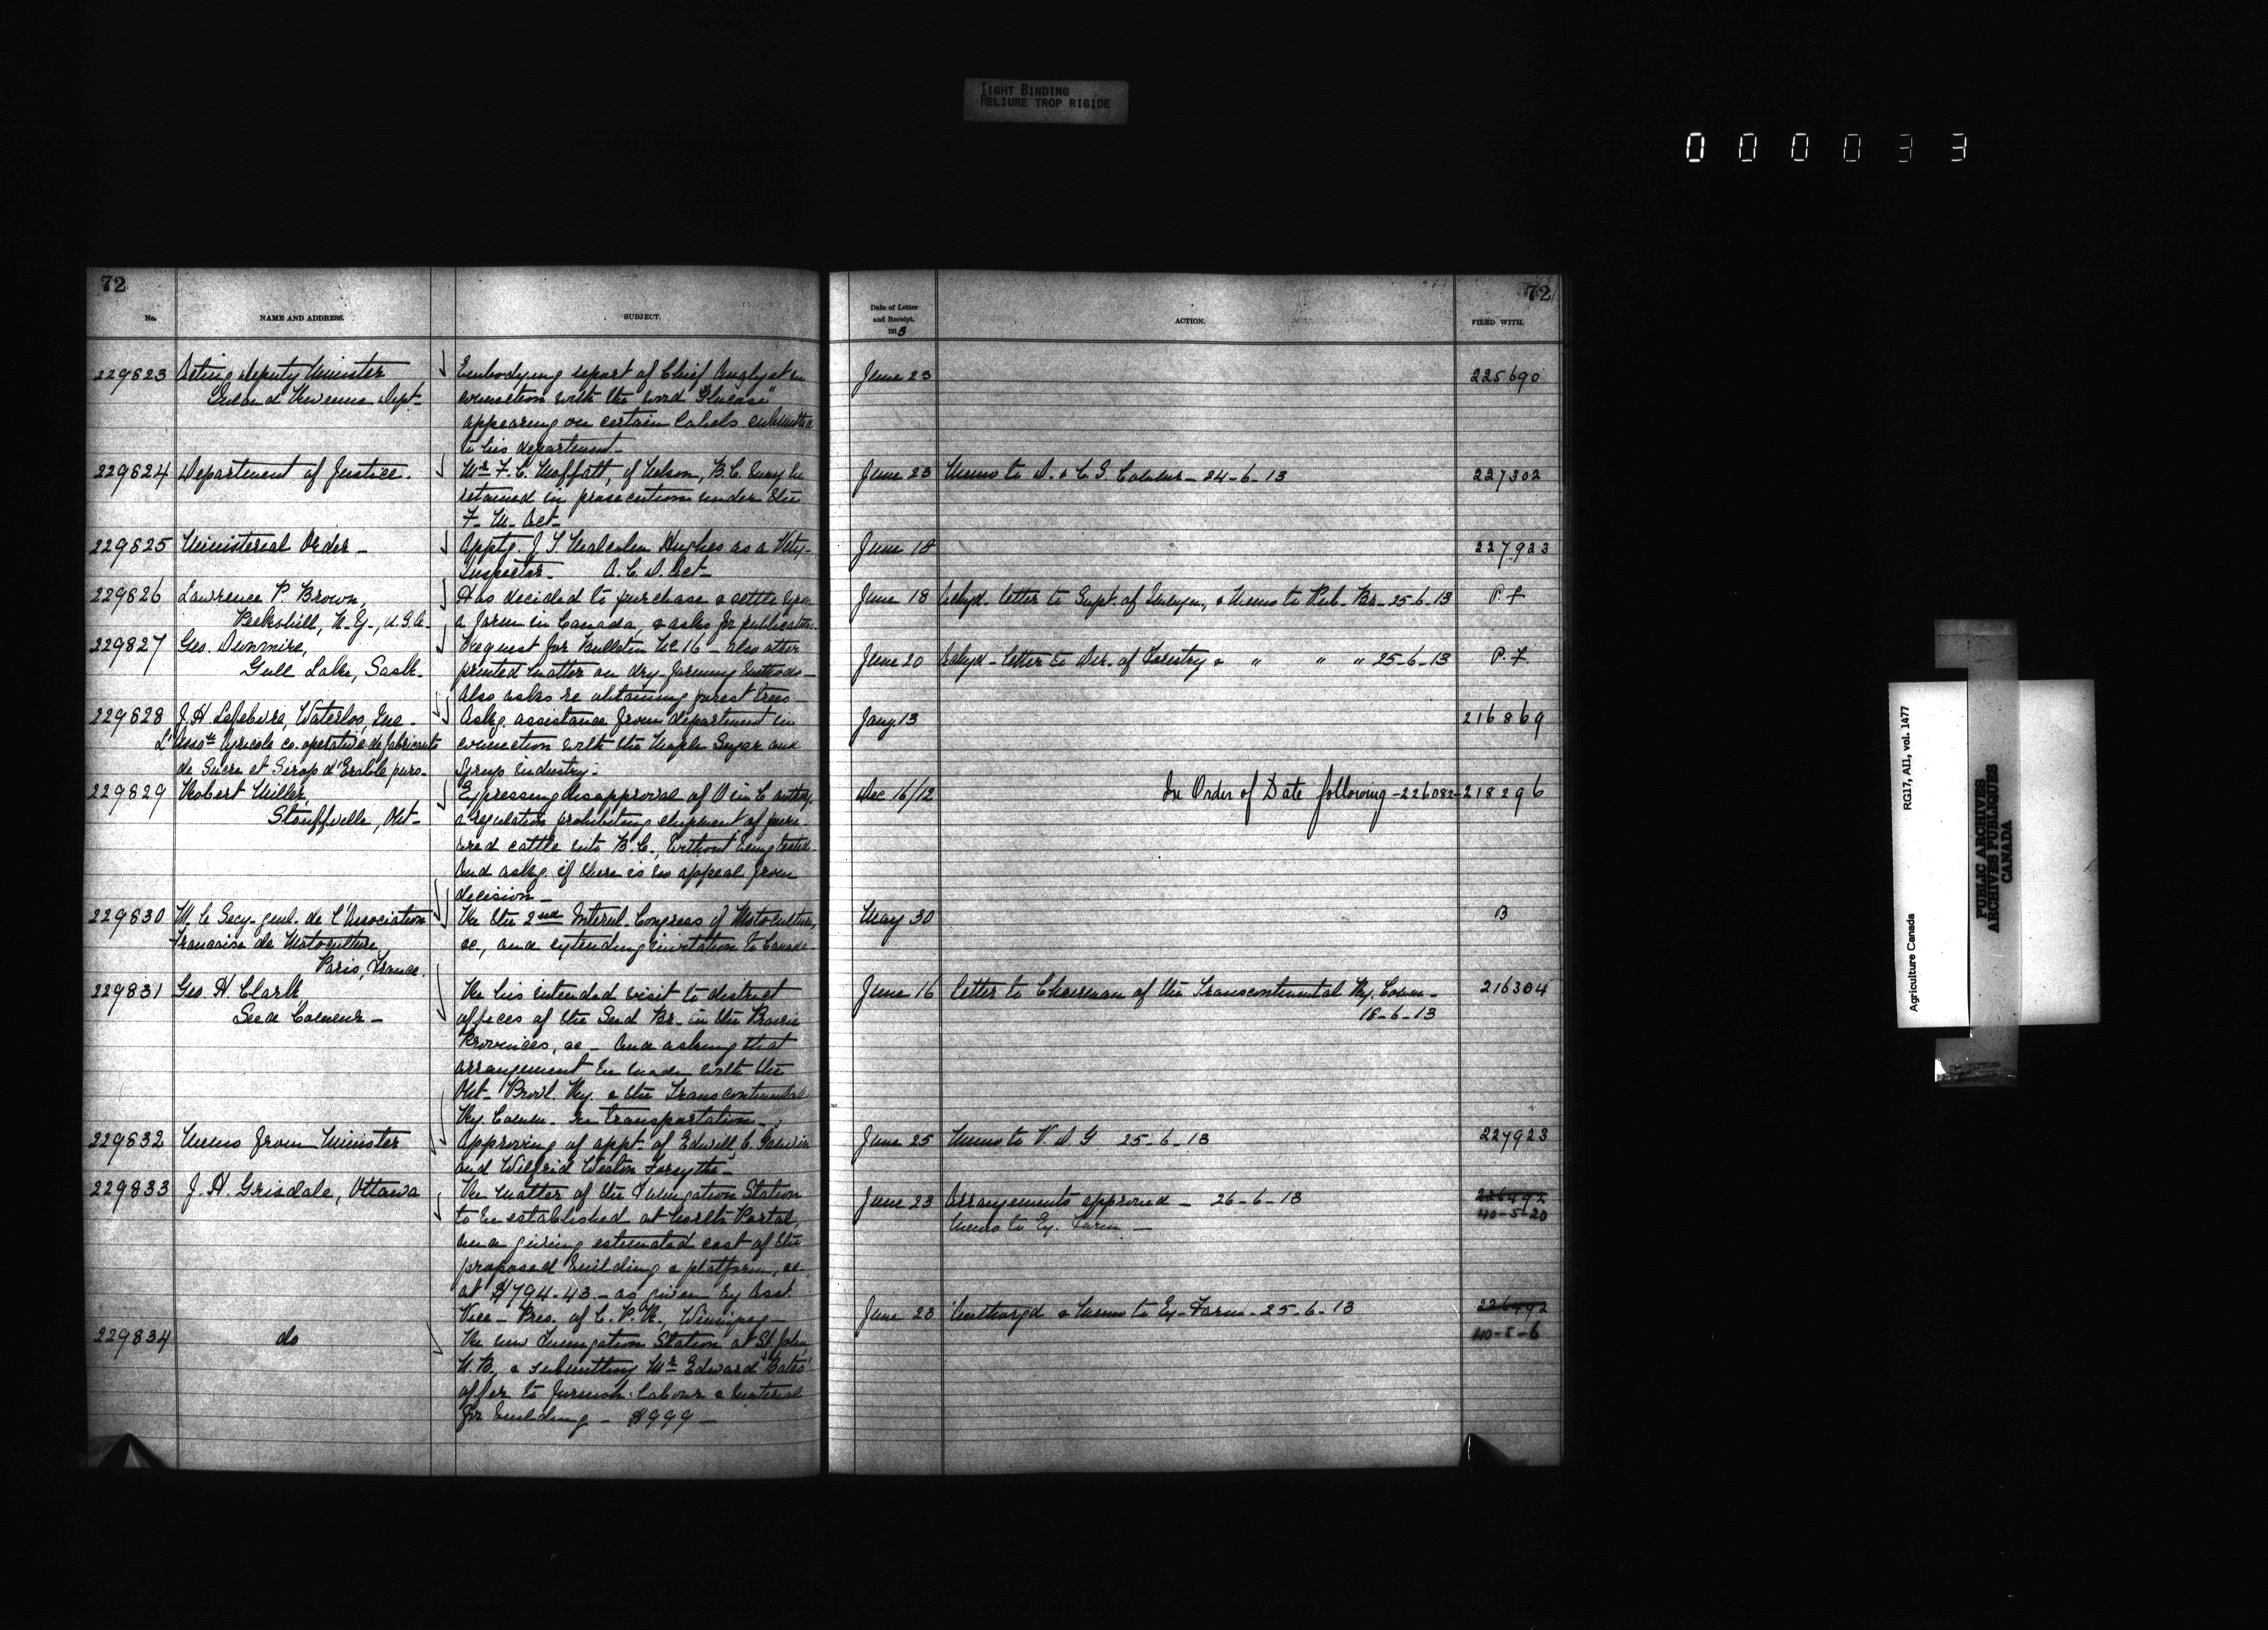 TIGHT BINDING
RELIURE TROP RIGIDE
000033
72
No.
NAME AND ADDRESS.
SUBJECT.
229823 Acting Deputy Minister
Inland Revenue Dept-
Embodying report of Chief Analyst in
connection with the word "Glucose"
appearing on certain labels submitted
to his department-
229824 Department of Justice.
Mr F. C. Moffatt, of Nelson, B.C. may be
retained in prosecution under the
F- M- Act-
229825 Ministerial Order-
Apptg. J. S. Malcolm Hughes as a Vety-
Inspector- A.C.D. Act-
229826 Lawrence P. Brown,
Peekskill, N-Y-, U.S.A-
Has decided to purchase & settle upon
a farm in Canada, & asks for publications-
229827 Geo. Dunmire,
Gull Lake, Sask-
Request for Bulletin No 16 - also other
printed matter on dry-farming methods-
Also asks re obtaining forest trees-
229828 J. H. Lefebvre, Waterloo, Que-
L'Assotn Agricole co-operative de fabricants
de Sucre et Sirop d'Erable purs-
Askg. assistance from department in
connection with the Maple Sugar and
Syrup industry-
229829 Robert Miller,
Stouffville, Ont-
Expressing disapproval of O in C authzg.
a regulation prohibiting shipment of pure
bred cattle into B.C., without being tested-
And askg. if there is no appeal from
decision-
229830 M. le Secy-genl- de l'Association
Francaise de Motoculture,
Paris, France.
Re the 2nd Internl- Congress of Motoculture,
&c, and extending invitation to Canada-
229831 Geo. H. Clark,
Seed Commr-
Re his intended visit to district
offices of the Seed Br- in the
Provinces, &c - And asking that
arrangement be made with the
Ont- Provl. Ry. & the Transcontinental
Ry. Commn- for transportation-
229832 Memo from Minister
Approving of appt- of Edwell C.
and Wilfrid Weston Forsythe-
229833 J. H. Grisdale, Ottawa
Re matter of the Fumigation Station
to be established at North Portal,
and giving estimated cost of the
proposed building & platform, &c
at $1794.43 - as given by Asst
Vice-Pres. of C.P.R., Winnipeg-
229834 do
Re new Fumigation Station at St. John,
N.B. & submitting Mr Edward Bates'
offer to furnish labour & material
for building - $999-
72
Date of Letter
and Receipt.
1913
ACTION.
FILED WITH.
June 23 225690
June 23 Memo to D. & C. S. Commr- 24-6-13 227302
June 18 227923
June 18 Ackgd- letter to Supt. of Immgn, & Memo to Pub- Br- 25-6-13 P.f.
June 20 Ackgd- letter to Dir- of Forestry & " " " 25-6-13 P.f.
Jany. 13 216869
Dec 16/12 In Order of Date following -226082- 218296
May 30 B
June 16 letter to Chairman of the Transcontinental Ry. Commn-
18-6-13
216304
June 25 Memo to V. D. G 25-6-13 227923
June 23 Arrangements approved - 26-6-13 226492
Memo to Ex. Farm- 40-5-20
June 23 Authorzd & Memo to Ex-Farm- 25-6-13 226492
40-5-6
Agriculture Canada RG17, AII, vol. 1477
PUBLIC ARCHIVES
ARCHIVES PUBLIQUES
CANADA